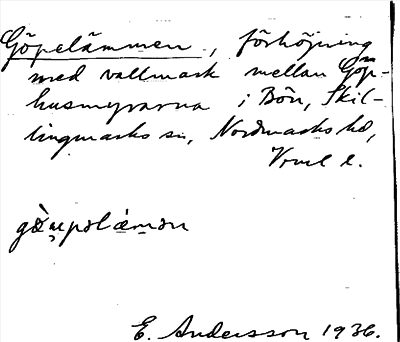 Göpelämmen, förhöjning
med vallmark mellan Göp-
husmyrarna i Bön, Skil-
lingmarks sn, Nordmarks hd,
Vrml l.
E. Andersson 1936.